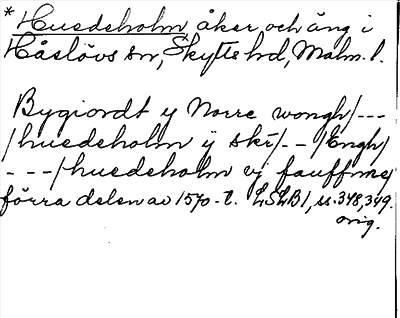 * Huedeholm åker och äng i
Håslövs sn, Skytts hd, Malm. l.
Bygiordt y Norre wongh /---
/ huedeholm ÿ skr̄ /-- / Engh /
---/ huedeholm vj fauffnne
förra delen av 1570-t. LSLB 1, ss. 348, 349.
orig.